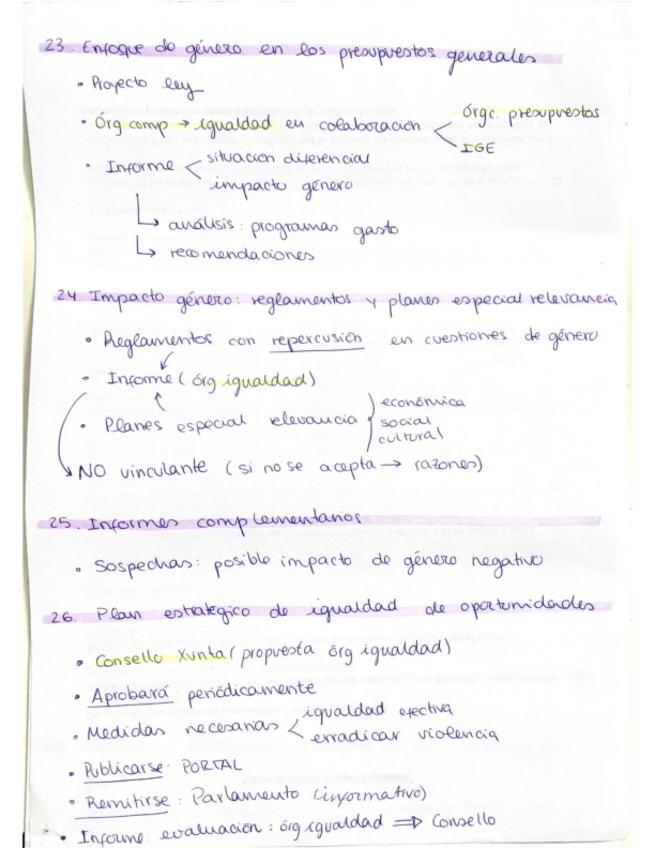 23. Enfoque de género en los presupuestos generales
• Proyecto ley
• Órg comp → igualdad en colaboración < órgc. presupuestos
IGE
• Informe < situación diferencial
impacto género
↳ análisis: programas gasto
↳ recomendaciones
24 Impacto género: reglamentos y planes especial relevancia
• Reglamentos con repercusión en cuestiones de género
• Informe (órg igualdad)
• Planes especial relevancia } económica
social
cultural
NO vinculante (si no se acepta → razones)
25. Informes complementarios
• Sospechas: posible impacto de género negativo
26. Plan estratégico de igualdad de oportunidades
• Consello Xunta (propuesta órg igualdad)
• Aprobará periódicamente
• Medidas necesarias < igualdad efectiva
erradicar violencia
• Publicarse: PORTAL
• Remitirse: Parlamento (informativo)
• Informe evaluación: órg igualdad ⇒ Consello